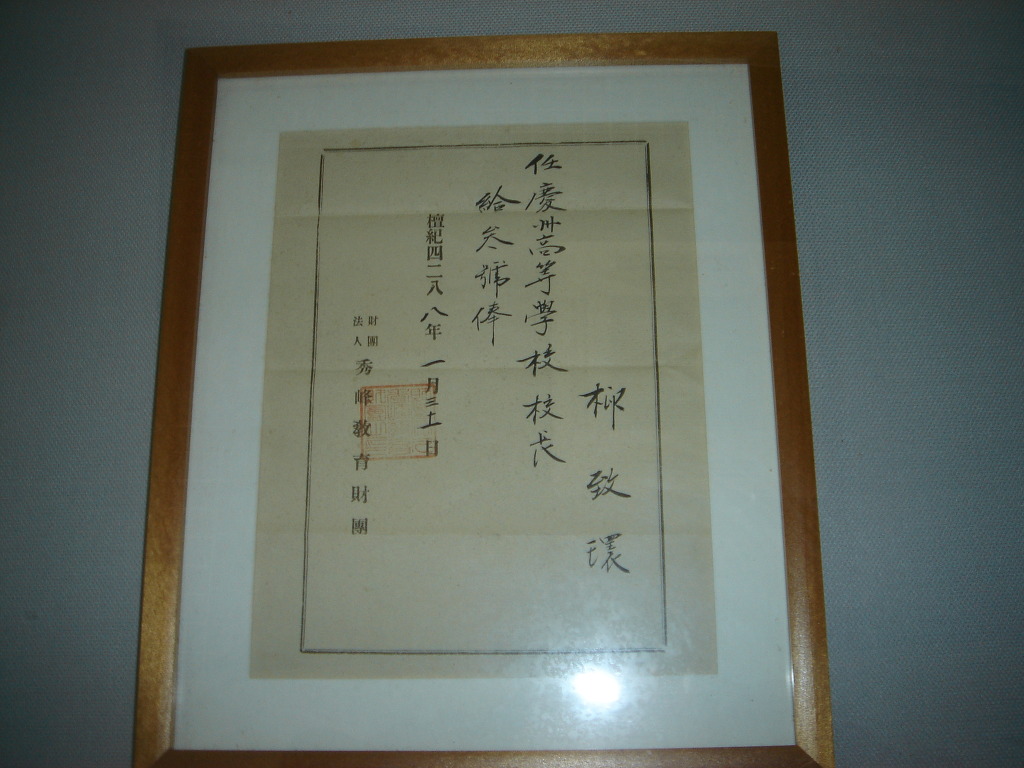 柳致環
任慶州高等學校校長
給叄號俸
檀紀四二八八年一月三十一日
財團法人秀峰敎育財團